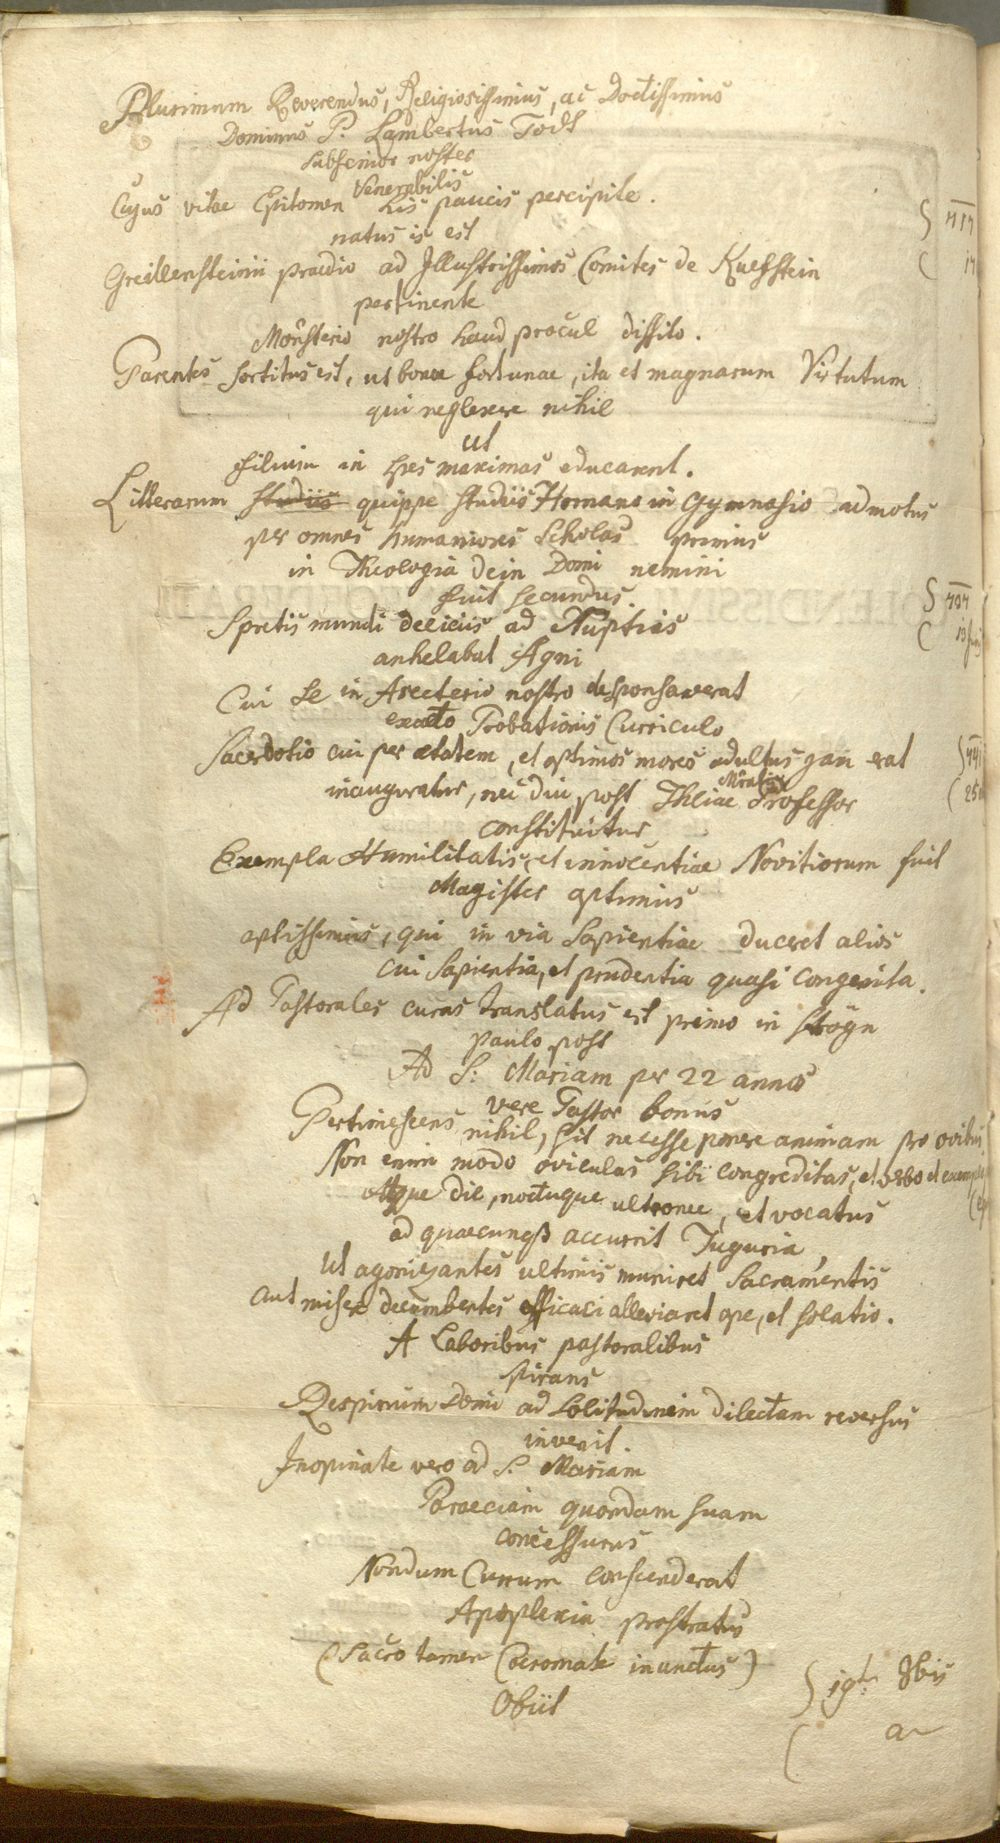 Plurimum Reverendus, Religiosissimus, ac Doctissimus
Dominus P. Lambertus Todt
subsenior noster
Venerabilis
Cujus vitae Epitomen his paucis percipite.
natus is est
Greillensteinii praedio ad Illustrissimos Comites de Kueffstein
pertinente
Monsterio nostro haud procul dissito.
Parentes sortitus est, ut bonae fortunae, ita et magnarum Virtutum
qui neglexere nihil
ut
filium in spes maximas educarent.
Litterarum studiis quippe studiis Hornano in Gymnasio admotus
per omnes humaniores Scholas primus
in Theologia dein Domi nemini
fuit secundus.
Spretis mundi deliciis ad Nuptias
anhelabat Agni
Cui se in Asceterio nostro desponsaverat
exacto Probationis Curriculo
Sacerdotio cui per aetatem, et optimos mores adultus jam erat
inauguratur, nec diu post Thliae Mralis Professor
constituitur
Exempla Humilitatis, et innocentiae Novitiorum fuit
Magister optimus
aptissimus, qui in via Sapientiae duceret alios
cui Sapientia, et prudentia quasi congenita.
Ad Pastorales curas translatus est primo in Strögn
paulo post
Ad S: Mariam per 22 annos
vere Pastor bonus
Pertimescens nihil, sit necesse ponere animam pro ovibus
Non enim modo oviculas sibi congreditas, et verbo et exemplo
Atque die, noctuque ultronee, et vocatus
ad quaecunq3 accurrit Tuguria,
Ut agonizantes ultimis muniret Sacramentis
aut misere decumbentes efficaci alleviaret ope, et solatio.
A Laboribus pastoralibus
spirans
Respirium domi ad solitudinem dilectam reversus
invenit.
Inopinate vero ad S. Mariam
Paraeciam quondam suam
concessurus
Nondum Currum conscenderat
Apoplexia prostratus
(Sacro tamen Ceromate inunctus)
Obiit